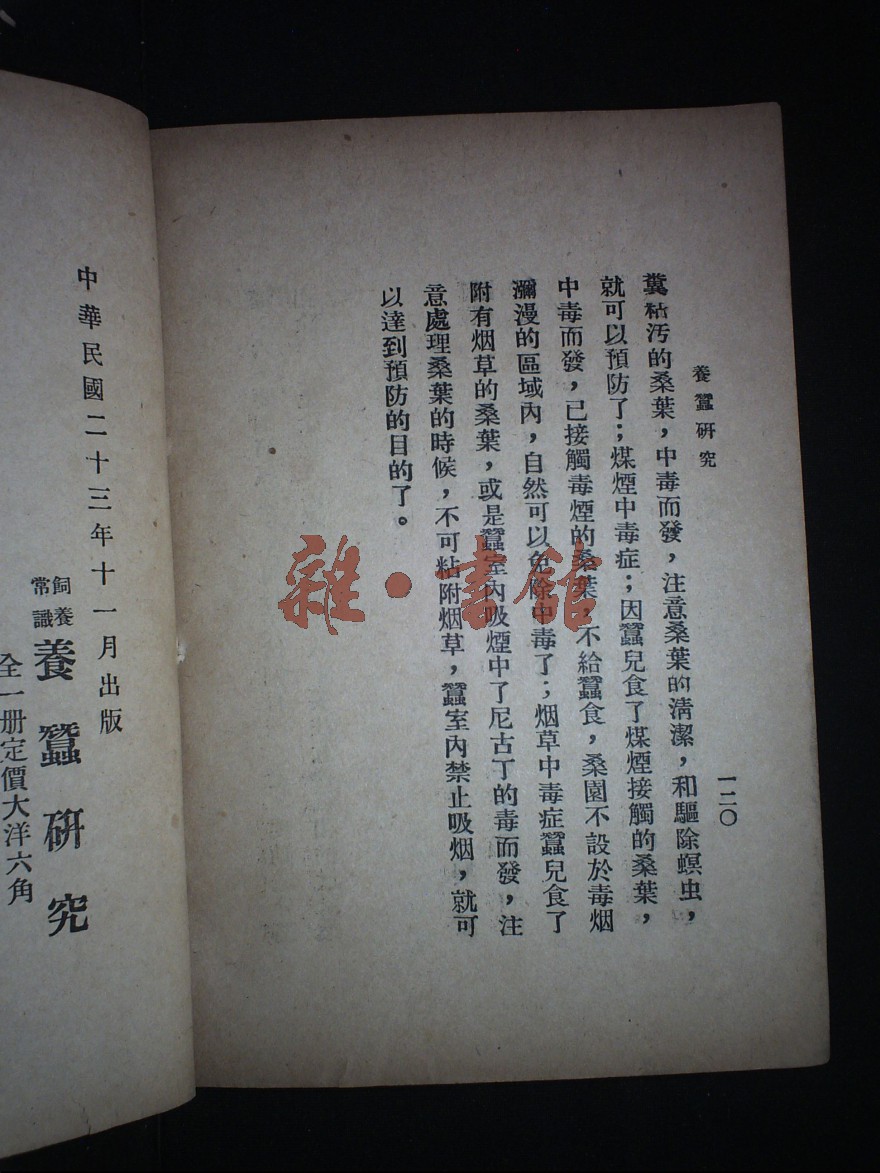 養蠶研究
一二〇
糞粘汚的桑葉，中毒而發，注意桑葉的淸潔，和驅除螟虫，
就可以預防了；煤煙中毒症；因蠶兒食了煤煙接觸的桑葉，
中毒而發，已接觸毒煙的桑葉，不給蠶食，桑園不設於毒烟
瀰漫的區域內，自然可以免除中毒了；烟草中毒症蠶兒食了
附有烟草的桑葉，或是蠶室內吸煙中了尼古丁的毒而發，注
意處理桑葉的時候，不可粘附烟草，蠶室內禁止吸烟，就可
以達到預防的目的了。
中華民國二十三年十一月出版
飼養
常識
養蠶硏究
全一册定價大洋六角
雜·書館